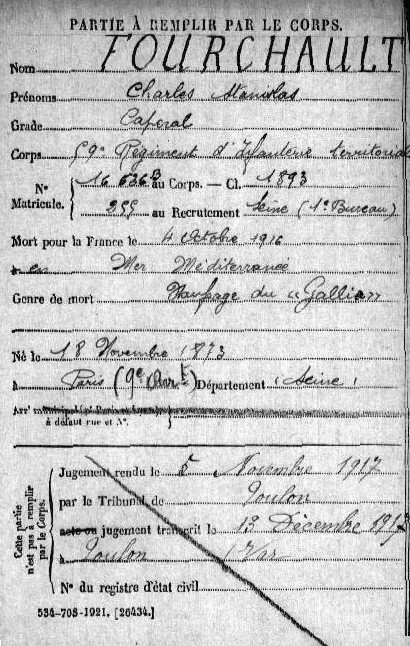 PARTIE À REMPLIR PAR LE CORPS.
Nom FOURCHAULT
Prénoms Charles Stanislas
Grade Caporal
Corps 59e Régiment d'Infanterie territoriale
N° Matricule. { 16 636B au Corps. — Cl. 1893
299 au Recrutement Seine (1e Bureau)
Mort pour la France le 4 Octobre 1916
à en Mer Méditerranée
Genre de mort Naufrage du «Gallia»
Né le 18 Novembre 1873
à Paris (9e Arrt) Département (Seine)
Arrt municipal (pr Paris et Lyon),
à défaut rue et N°.
Cette partie n'est pas à remplir par le Corps.
Jugement rendu le 5 Novembre 1917
par le Tribunal de Toulon
acte ou jugement transcrit le 13 Décembre 1917
à Toulon (Var
N° du registre d'état civil
534-708-1921. [26434.]